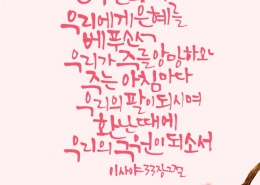 우리에게 은혜를
베푸소서
우리가 주를 앙망하오니
주는 아침마다
우리의 팔이 되시며
환난때에
우리의 구원이 되소서
이사야 33장 2절